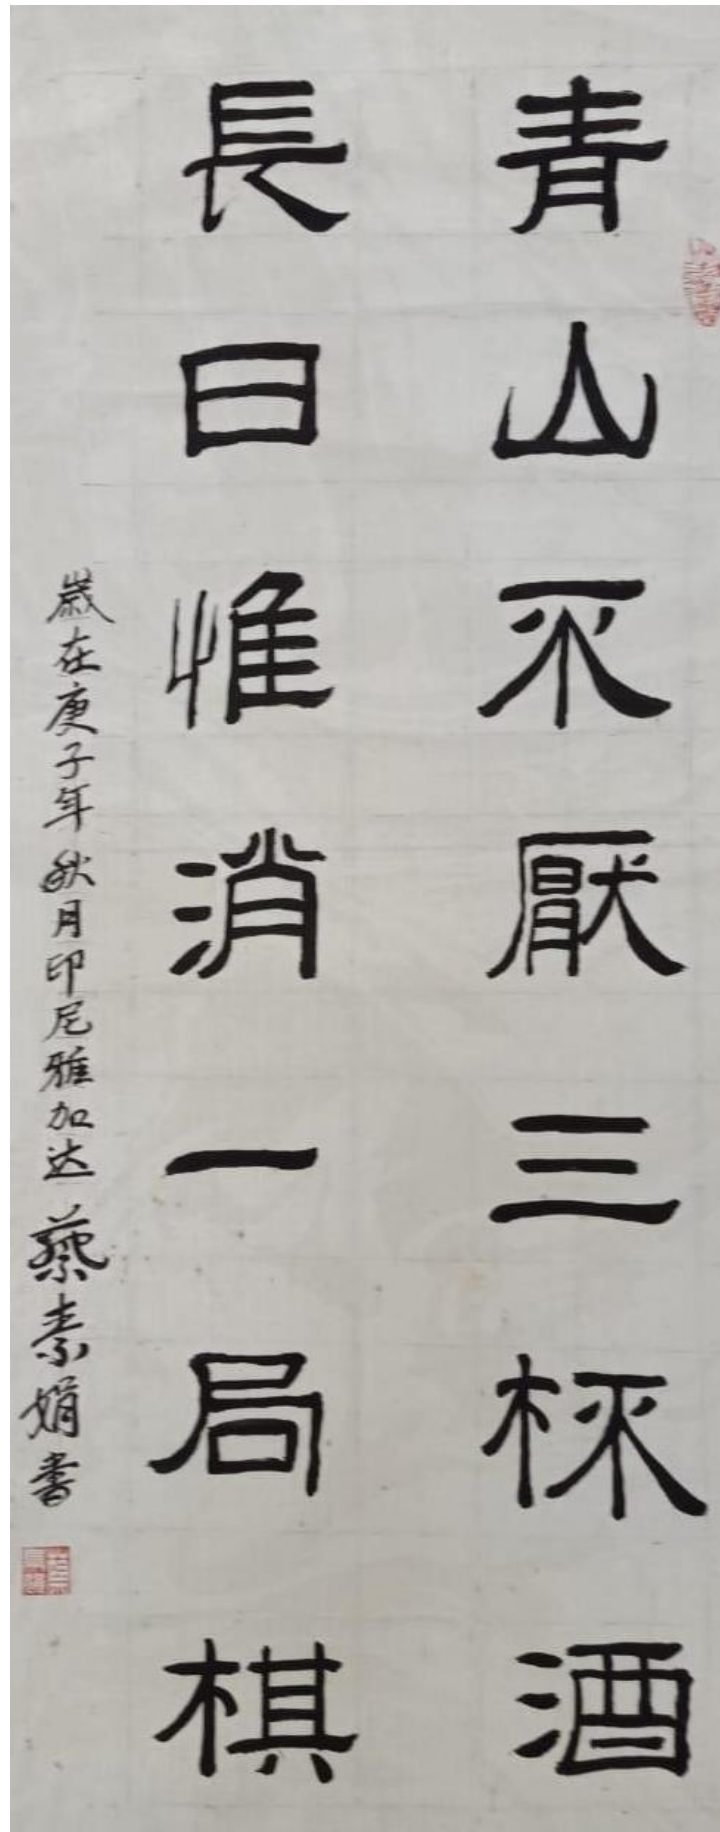 青山不厭三杯酒
長日惟消一局棋
歲在庚子年秋月印尼雅加达蔡素娟書